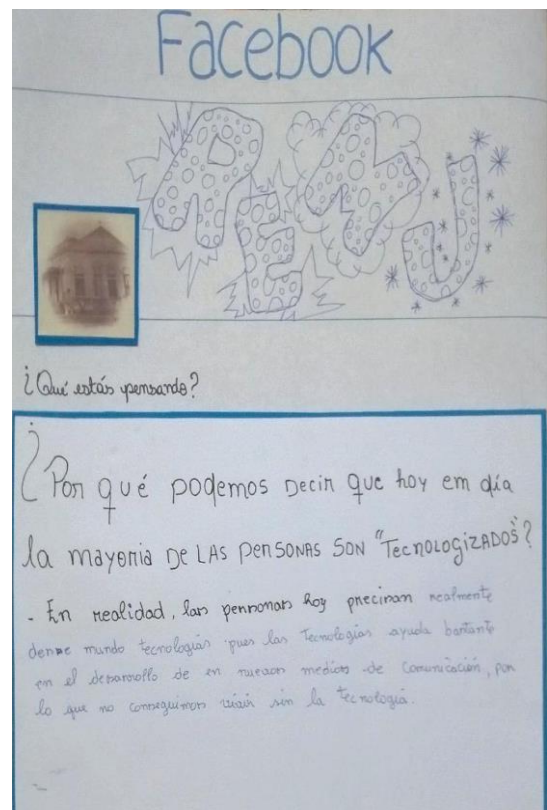 Facebook
AEMJ
¿Qué estás pensando?
¿Por qué podemos Decir que hoy em día
la mayoria DE LAS PERSONAS SON "TecnologizADOS"?
- En realidad, las personas hoy precisan realmente
dense mundo tecnologías pues las Tecnologías ayuda bastante
en el desarrollo de en nuevos medios de Comunicación, por
lo que no conseguimos vivir sin la tecnología.